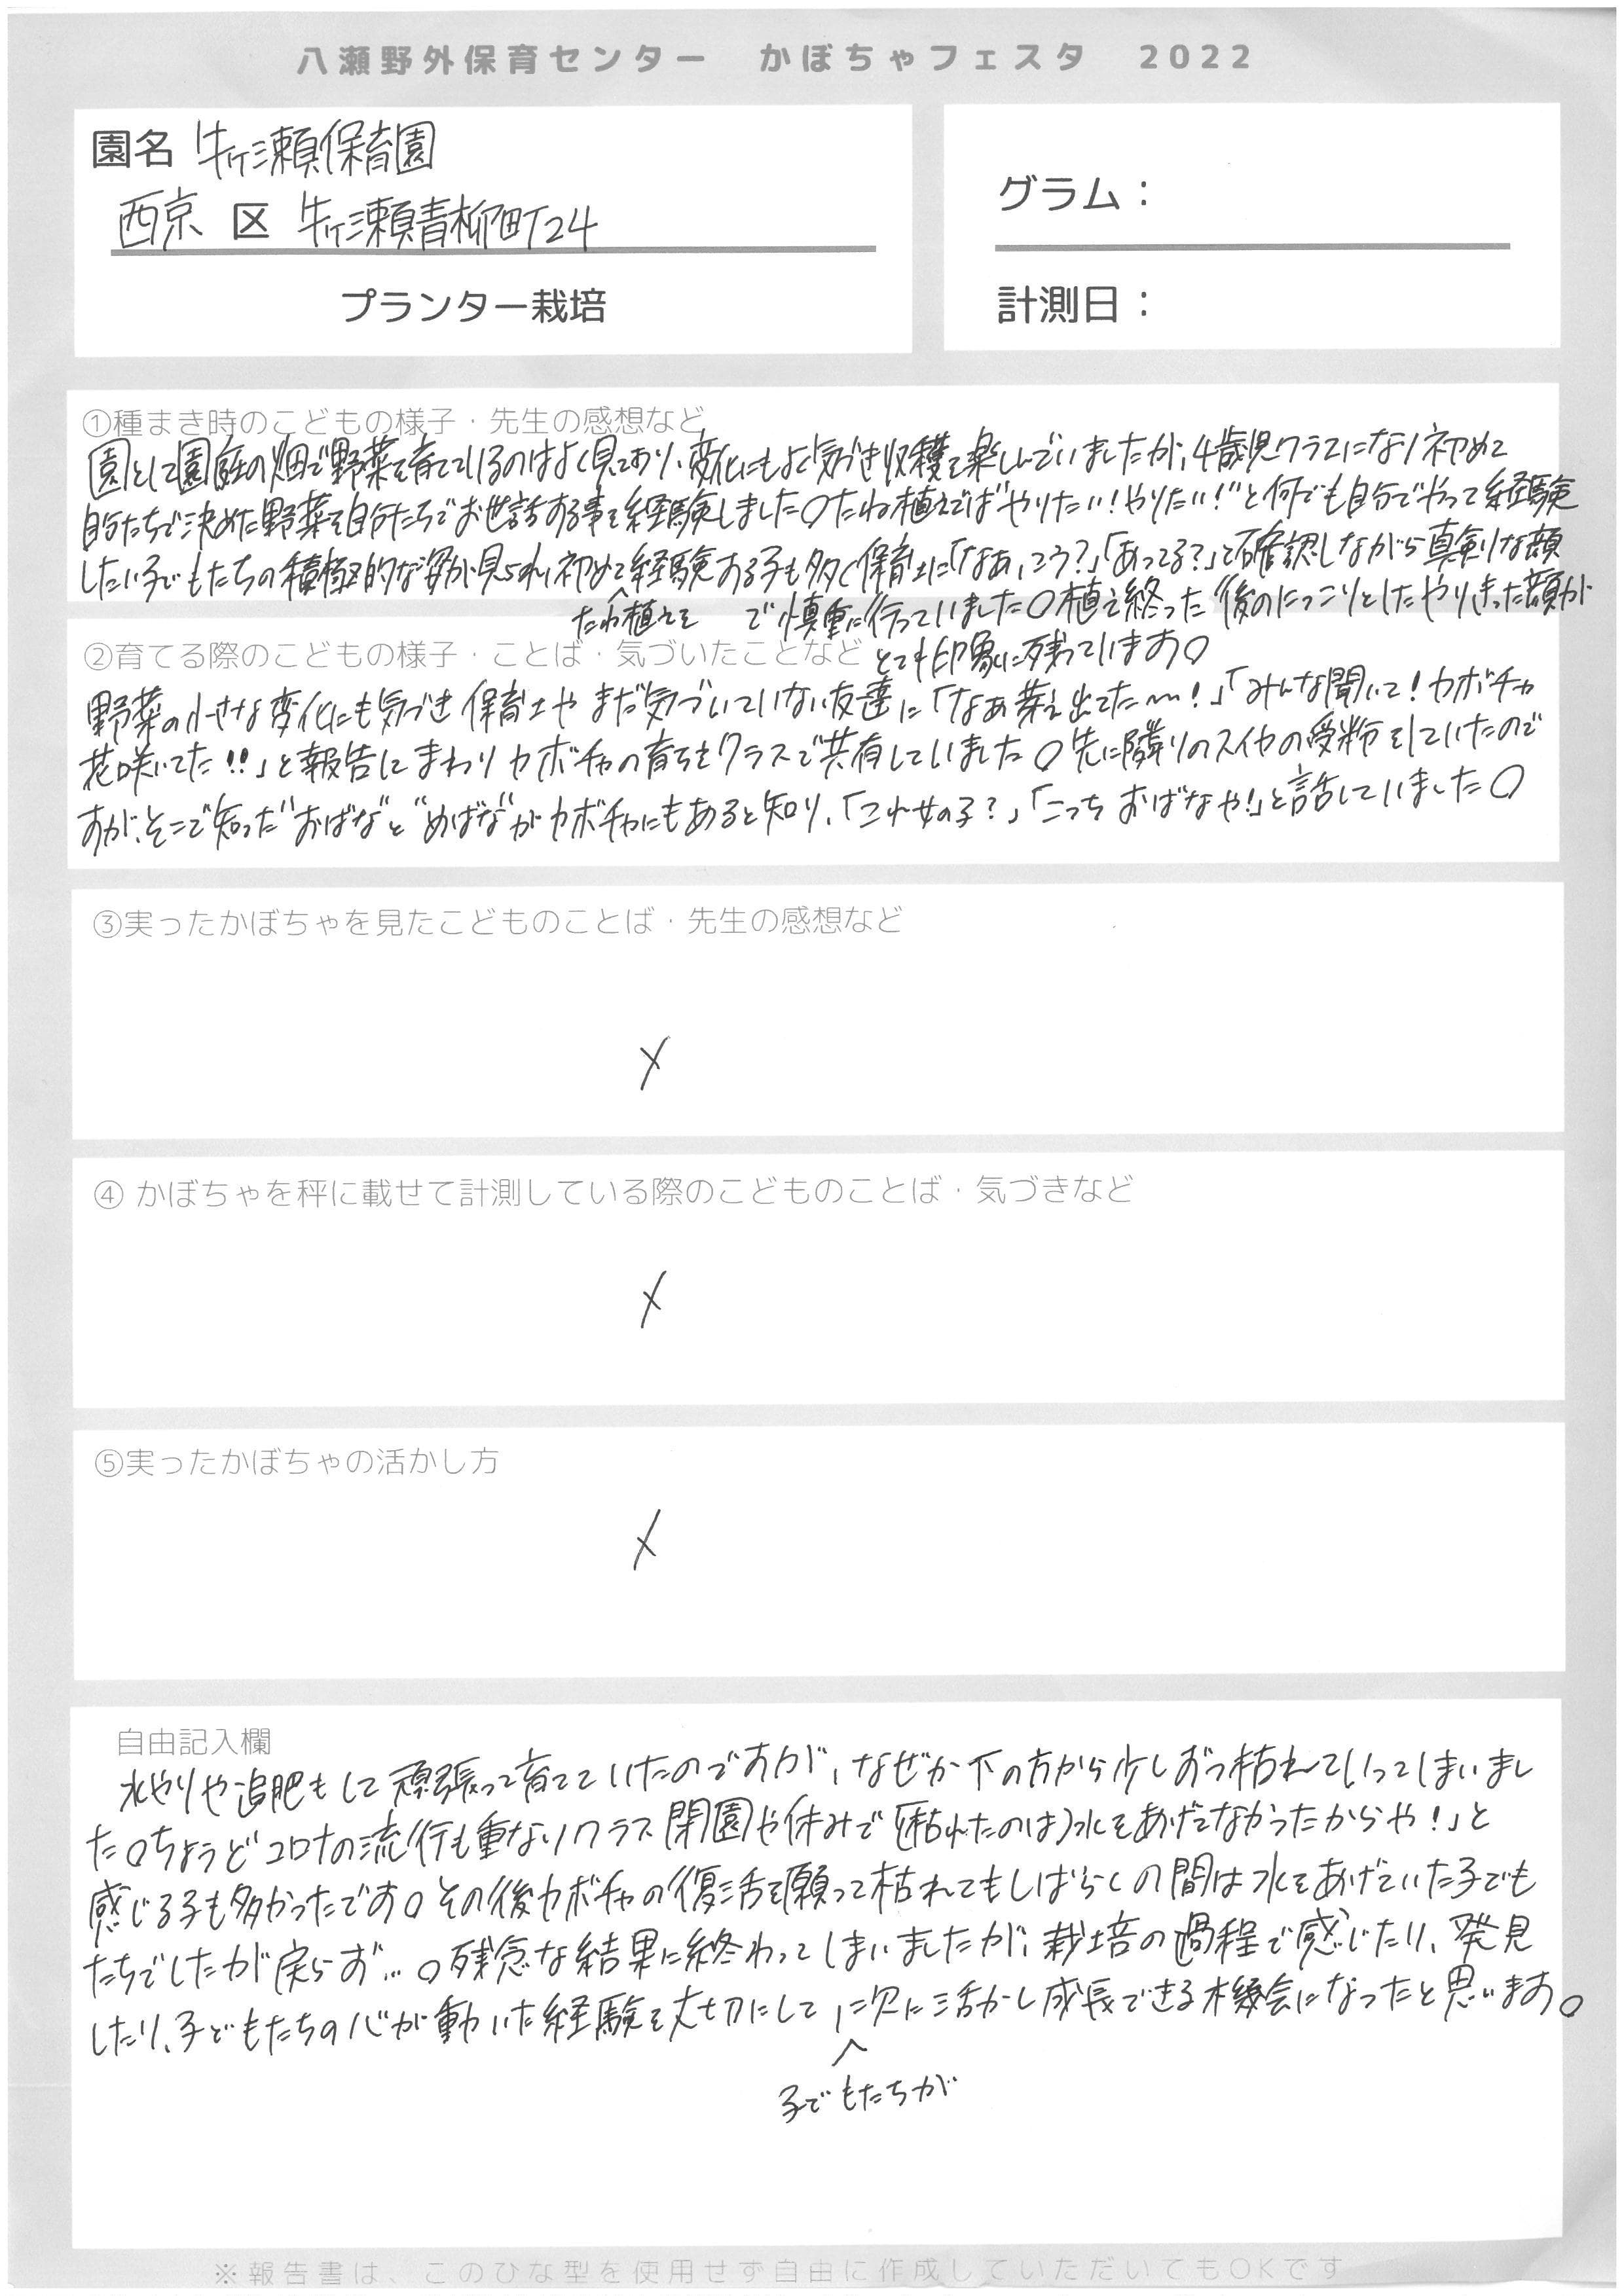 八瀬野外保育センター　かぼちゃフェスタ　2022
園名 牛ケ瀬保育園
西京 区 牛ケ瀬青柳町24
プランター栽培
グラム：
計測日：
①種まき時のこどもの様子・先生の感想など
園として園庭の畑で野菜を育てているのはよく見ており、変化にもよく気づき収穫を楽しんでいましたが、4歳児クラスになり初めて
自分たちで決めた野菜を自分たちでお世話する事を経験しました。たね植えでは"やりたい！やりたい！"と何でも自分でやって経験
したい子どもたちの積極的な姿が見られ、初めて経験する子も多く保育士に「なあ、こう？」「あってる？」と確認しながら真剣な顔
たね植えを　で慎重に行っていました。植え終った後のにっこりとしたやりきった顔が
②育てる際のこどもの様子・ことば・気づいたことなど とても印象に残っています。
野菜の小さな変化にも気づき保育士やまだ気づいていない友達に「なぁ芽え出てた〜！」「みんな聞いて！カボチャ
花咲いてた!!」と報告にまわりカボチャの育ちをクラスで共有していました。先に隣りのスイカの受粉をしていたので
すが、そこで知った"おばな"と"めばな"がカボチャにもあると知り、「これ女の子？」「こっちおばなや！」と話していました。
③実ったかぼちゃを見たこどものことば・先生の感想など
×
④ かぼちゃを秤に載せて計測している際のこどものことば・気づきなど
×
⑤実ったかぼちゃの活かし方
×
自由記入欄
水やりや追肥もして頑張って育てていたのですが、なぜか下の方から少しずつ枯れていってしまいまし
た。ちょうどコロナの流行も重なりクラス閉園や休みで「(枯れたのは)水をあげてなかったからや！」と
感じる子も多かったです。その後カボチャの復活を願って枯れてもしばらくの間は水をあげていた子ども
たちでしたが戻らず…。残念な結果に終わってしまいましたが、栽培の過程で感じたり、発見
したり、子どもたちの心が動いた経験を大切にして、次に活かし成長できる機会になったと思います。
子どもたちが
※報告書は、このひな型を使用せず自由に作成していただいてもOKです